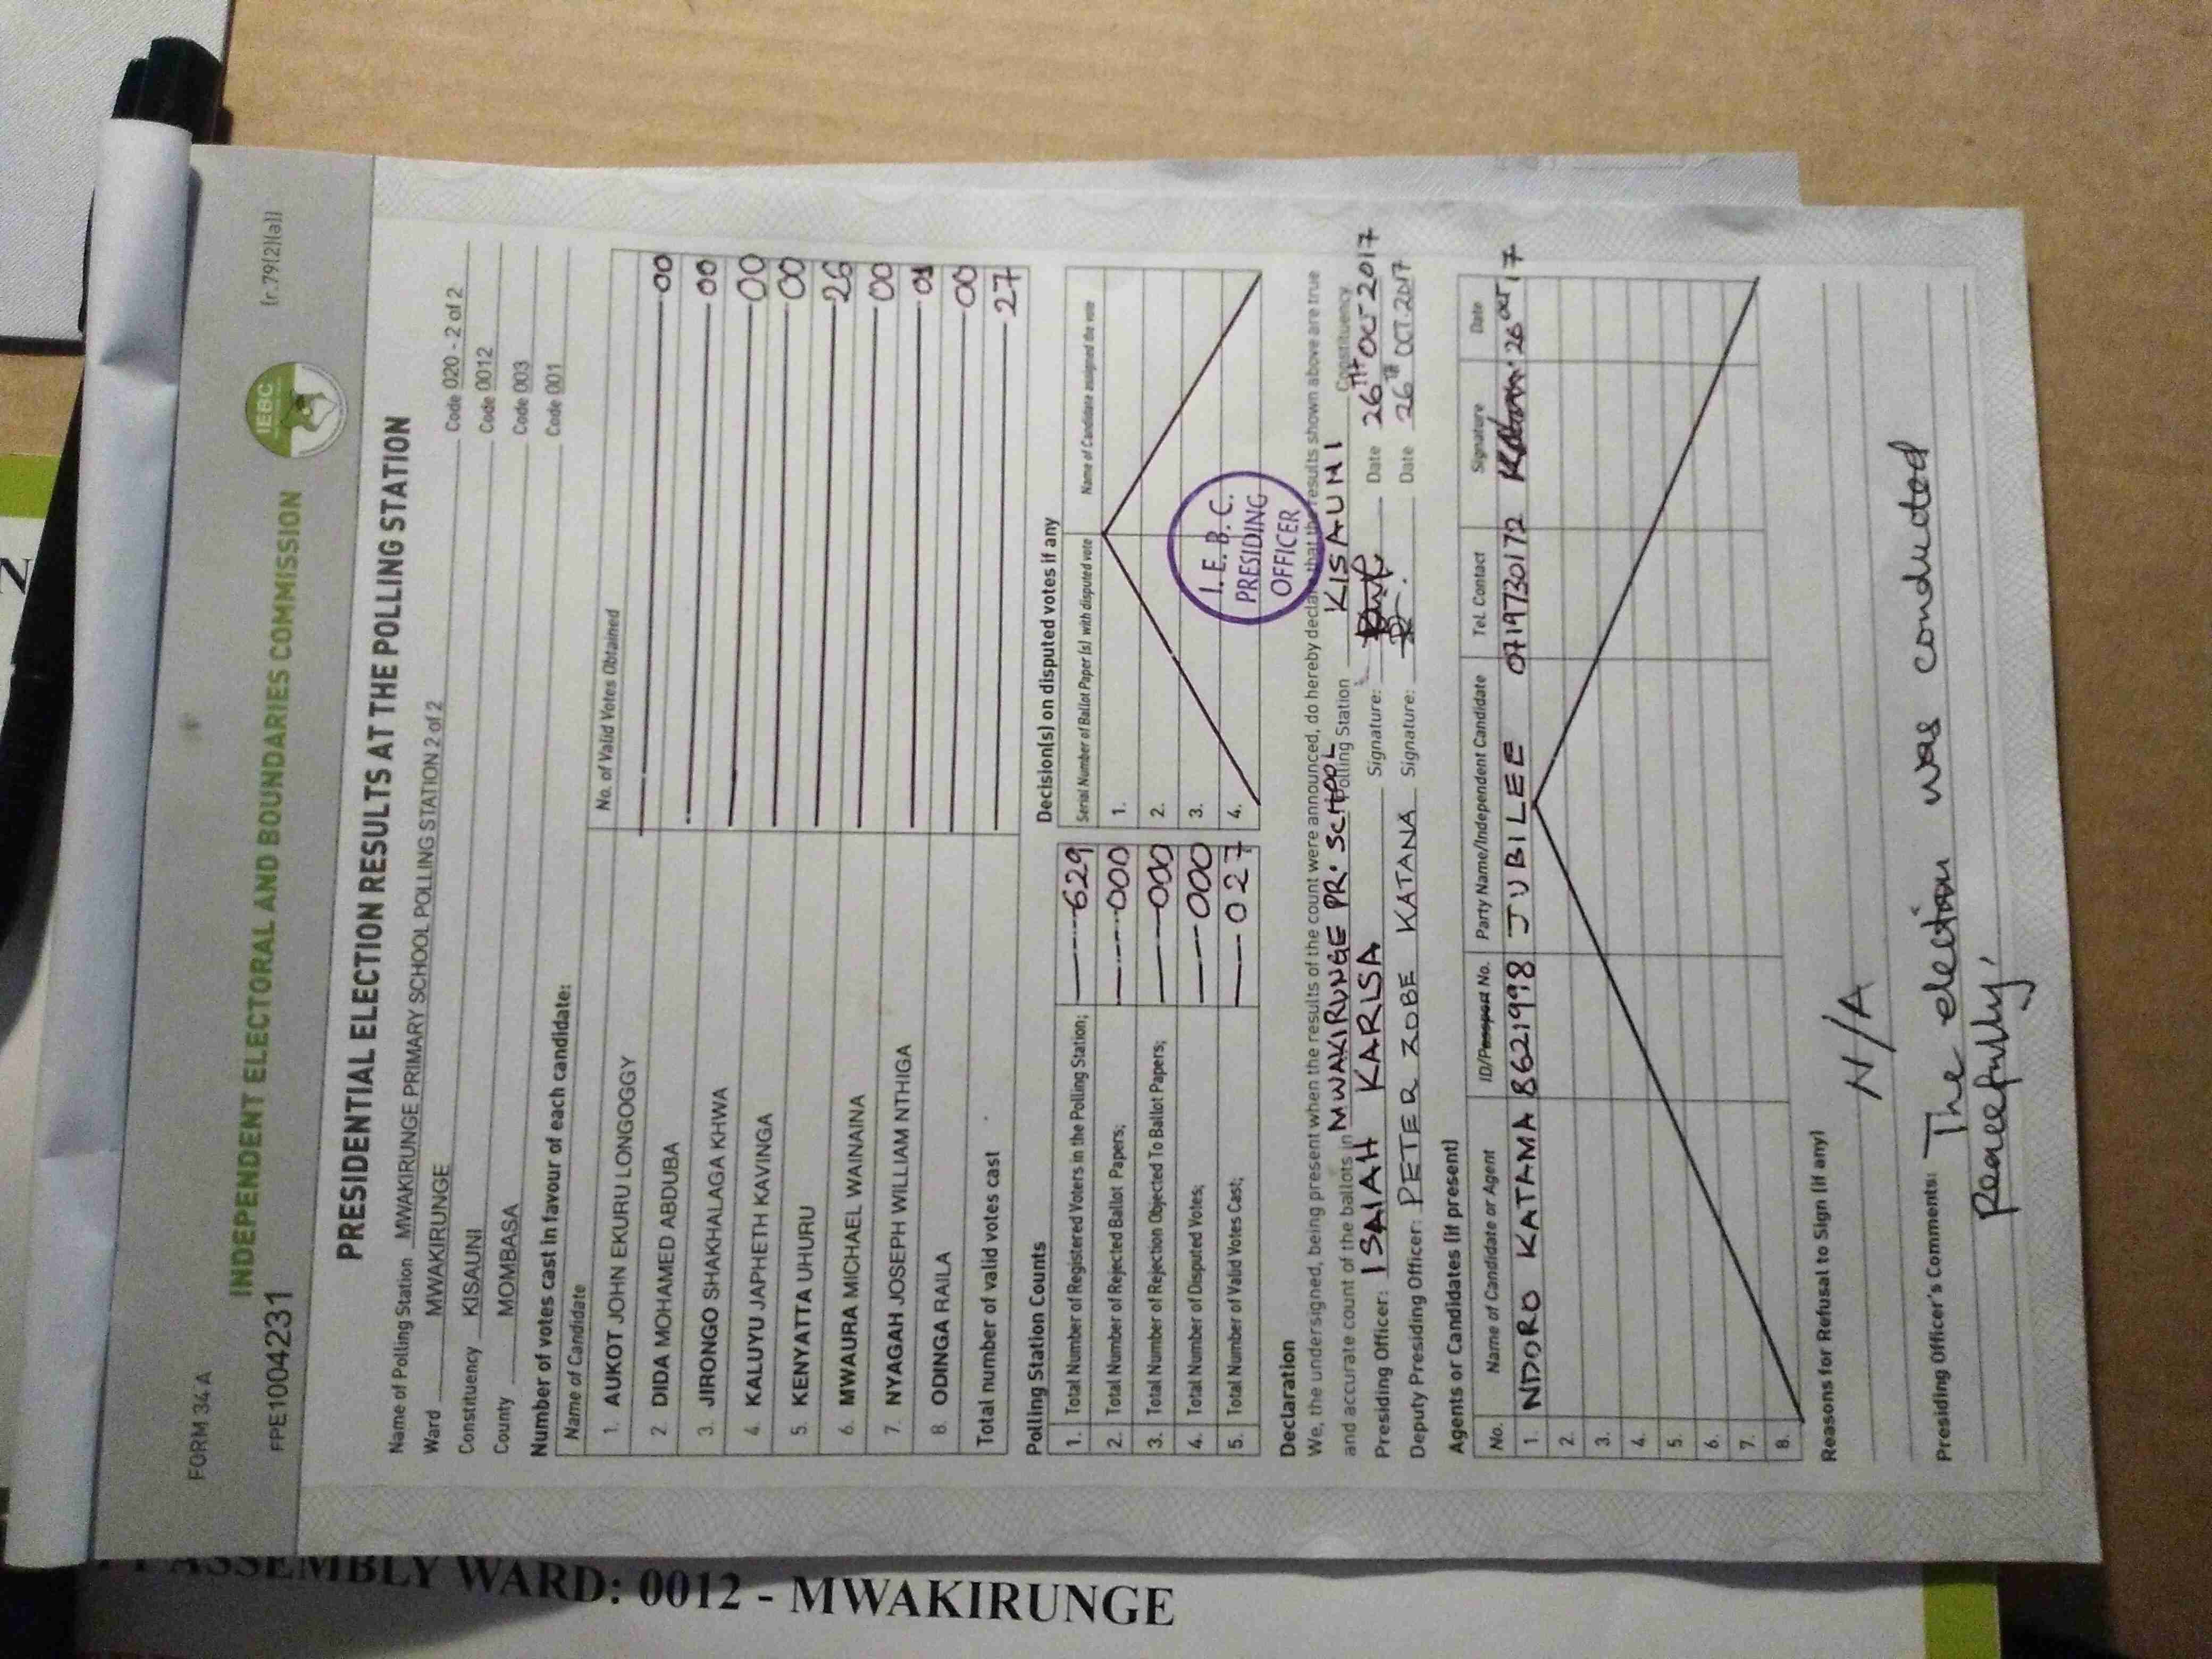 FORM 34 A
(r.79(2)(a))
FPE1004231
INDEPENDENT ELECTORAL AND BOUNDARIES COMMISSION
IEBC
PRESIDENTIAL ELECTION RESULTS AT THE POLLING STATION
Name of Polling Station MWAKIRUNGE PRIMARY SCHOOL POLLING STATION 2 of 2 Code 020 - 2 of 2
Ward MWAKIRUNGE Code 0012
Constituency KISAUNI Code 003
County MOMBASA Code 001
Number of votes cast in favour of each candidate:
Name of Candidate No. of Valid Votes Obtained
1. AUKOT JOHN EKURU LONGOGGY 00
2. DIDA MOHAMED ABDUBA 00
3. JIRONGO SHAKHALAGA KHWA 00
4. KALUYU JAPHETH KAVINGA 00
5. KENYATTA UHURU 26
6. MWAURA MICHAEL WAINAINA 00
7. NYAGAH JOSEPH WILLIAM NTHIGA 01
8. ODINGA RAILA 00
Total number of valid votes cast 27
Polling Station Counts
1. Total Number of Registered Voters in the Polling Station; 629
2. Total Number of Rejected Ballot Papers; 000
3. Total Number of Rejection Objected To Ballot Papers; 000
4. Total Number of Disputed Votes; 000
5. Total Number of Valid Votes Cast; 027
Decision(s) on disputed votes if any
Serial Number of Ballot Paper (s) with disputed vote Name of Candidate assigned the vote
1.
2.
3.
4.
I.E.B.C.
PRESIDING
OFFICER
Declaration
We, the undersigned, being present when the results of the count were announced, do hereby declare that the results shown above are true
and accurate count of the ballots in MWAKIRUNGE PR. SCHOOL Polling Station KISAUNI Constituency
Presiding Officer: ISAIAH KARISA Signature: Date 26TH OCT 2017
Deputy Presiding Officer: PETER ZOBE KATANA Signature: Date 26TH OCT. 2017
Agents or Candidates (if present)
No. Name of Candidate or Agent ID/Passport No. Party Name/Independent Candidate Tel. Contact Signature Date
1. NDORO KATAMA 8621998 JUBILEE 0719730172 26 OCT 17
2.
3.
4.
5.
6.
7.
8.
Reasons for Refusal to Sign (if any)
N/A
Presiding Officer's Comments: The election was conducted
peacefully.
ASSEMBLY WARD: 0012 - MWAKIRUNGE